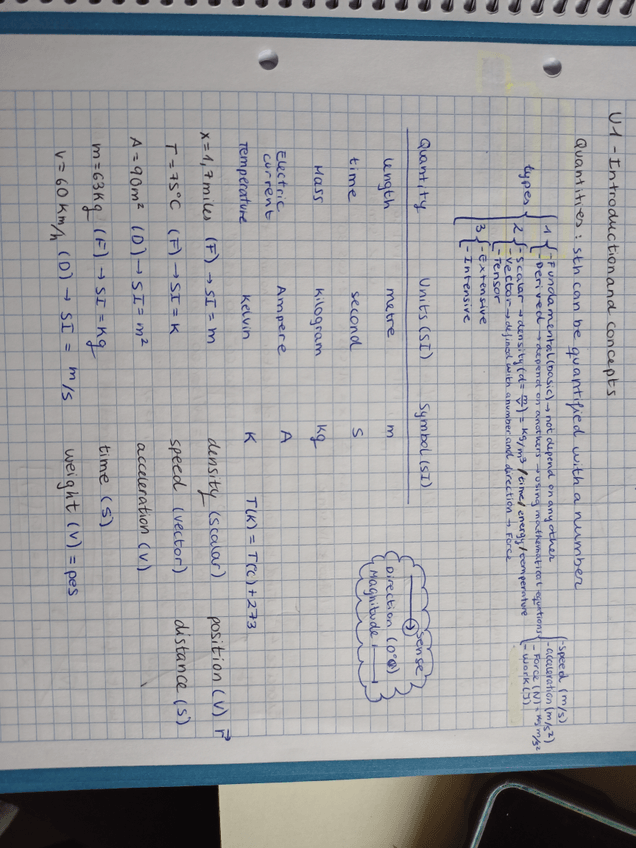 U1 - Introduction and concepts
Quantities: sth can be quantified with a number
types
1 - Fundamental (basic) → not depend on any other
- Derived → depend on anothers → using mathematical equations
- Speed (m/s)
- acceleration (m/s²)
- Force (N)
- Work (J)
2 - Scalar → density (d = m/v) = kg/m³ / time / energy / temperature
- Vector → defined with a number and direction → Force
- Tensor
3 - Extensive
- Intensive
Quantity Units (SI) Symbol (SI)
length metre m
time second s
Mass kilogram kg
Electric current Ampere A
Temperature Kelvin K T(K) = T(C) + 273
sense
Direction (0°)
Magnitude
x = 1,7 miles (F) → SI = m density (scalar) position (V) r⃗
T = 75°C (F) → SI = K speed (vector) distance (S)
A = 90m² (D) → SI = m² acceleration (V)
m = 63 kg (F) → SI = kg time (S)
v = 60 km/h (D) → SI = m/s weight (V) = pes